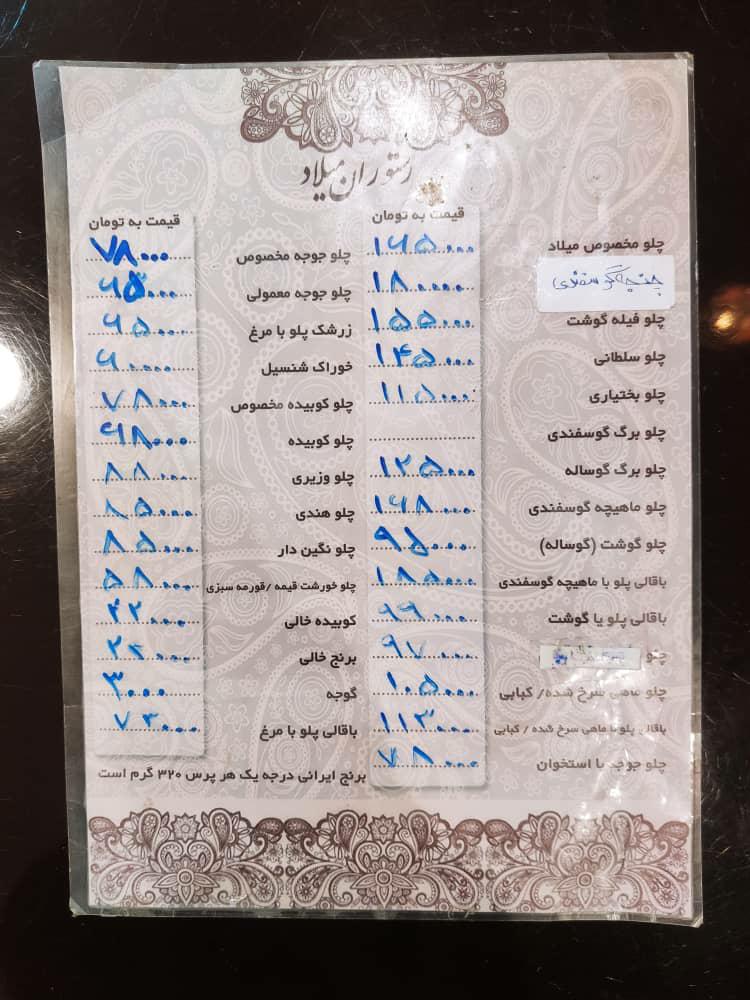 رستوران میلاد
قیمت به تومان
چلو مخصوص میلاد ۱۶۵۰۰۰
چنجه گوسفندی ۱۸۰۰۰۰
چلو فیله گوشت ۱۵۵۰۰۰
چلو سلطانی ۱۴۵۰۰۰
چلو بختیاری ۱۱۵۰۰۰
چلو برگ گوسفندی
چلو برگ گوساله ۱۲۵۰۰۰
چلو ماهیچه گوسفندی ۱۶۸۰۰۰
چلو گوشت (گوساله) ۹۵۰۰۰
باقالی پلو با ماهیچه گوسفندی ۱۸۵۰۰۰
باقالی پلو با گوشت ۹۹۰۰۰
چلو ۹۷۰۰۰
چلو ماهی سرخ شده/ کبابی ۱۰۵۰۰۰
باقالی پلو با ماهی سرخ شده / کبابی ۱۱۳۰۰۰
چلو جوجه با استخوان ۷۸۰۰۰
قیمت به تومان
چلو جوجه مخصوص ۷۸۰۰۰
چلو جوجه معمولی
زرشک پلو با مرغ ۶۵۰۰۰
خوراک شنسیل ۶۰۰۰۰
چلو کوبیده مخصوص ۷۸۰۰۰
چلو کوبیده ۶۸۰۰۰
چلو وزیری ۸۸۰۰۰
چلو هندی ۸۵۰۰۰
چلو نگین دار ۸۵۰۰۰
چلو خورشت قیمه /قورمه سبزی ۵۸۰۰۰
کوبیده خالی ۴۲۰۰۰
برنج خالی
گوجه ۳۰۰۰
باقالی پلو با مرغ
برنج ایرانی درجه یک هر پرس ۳۲۰ گرم است